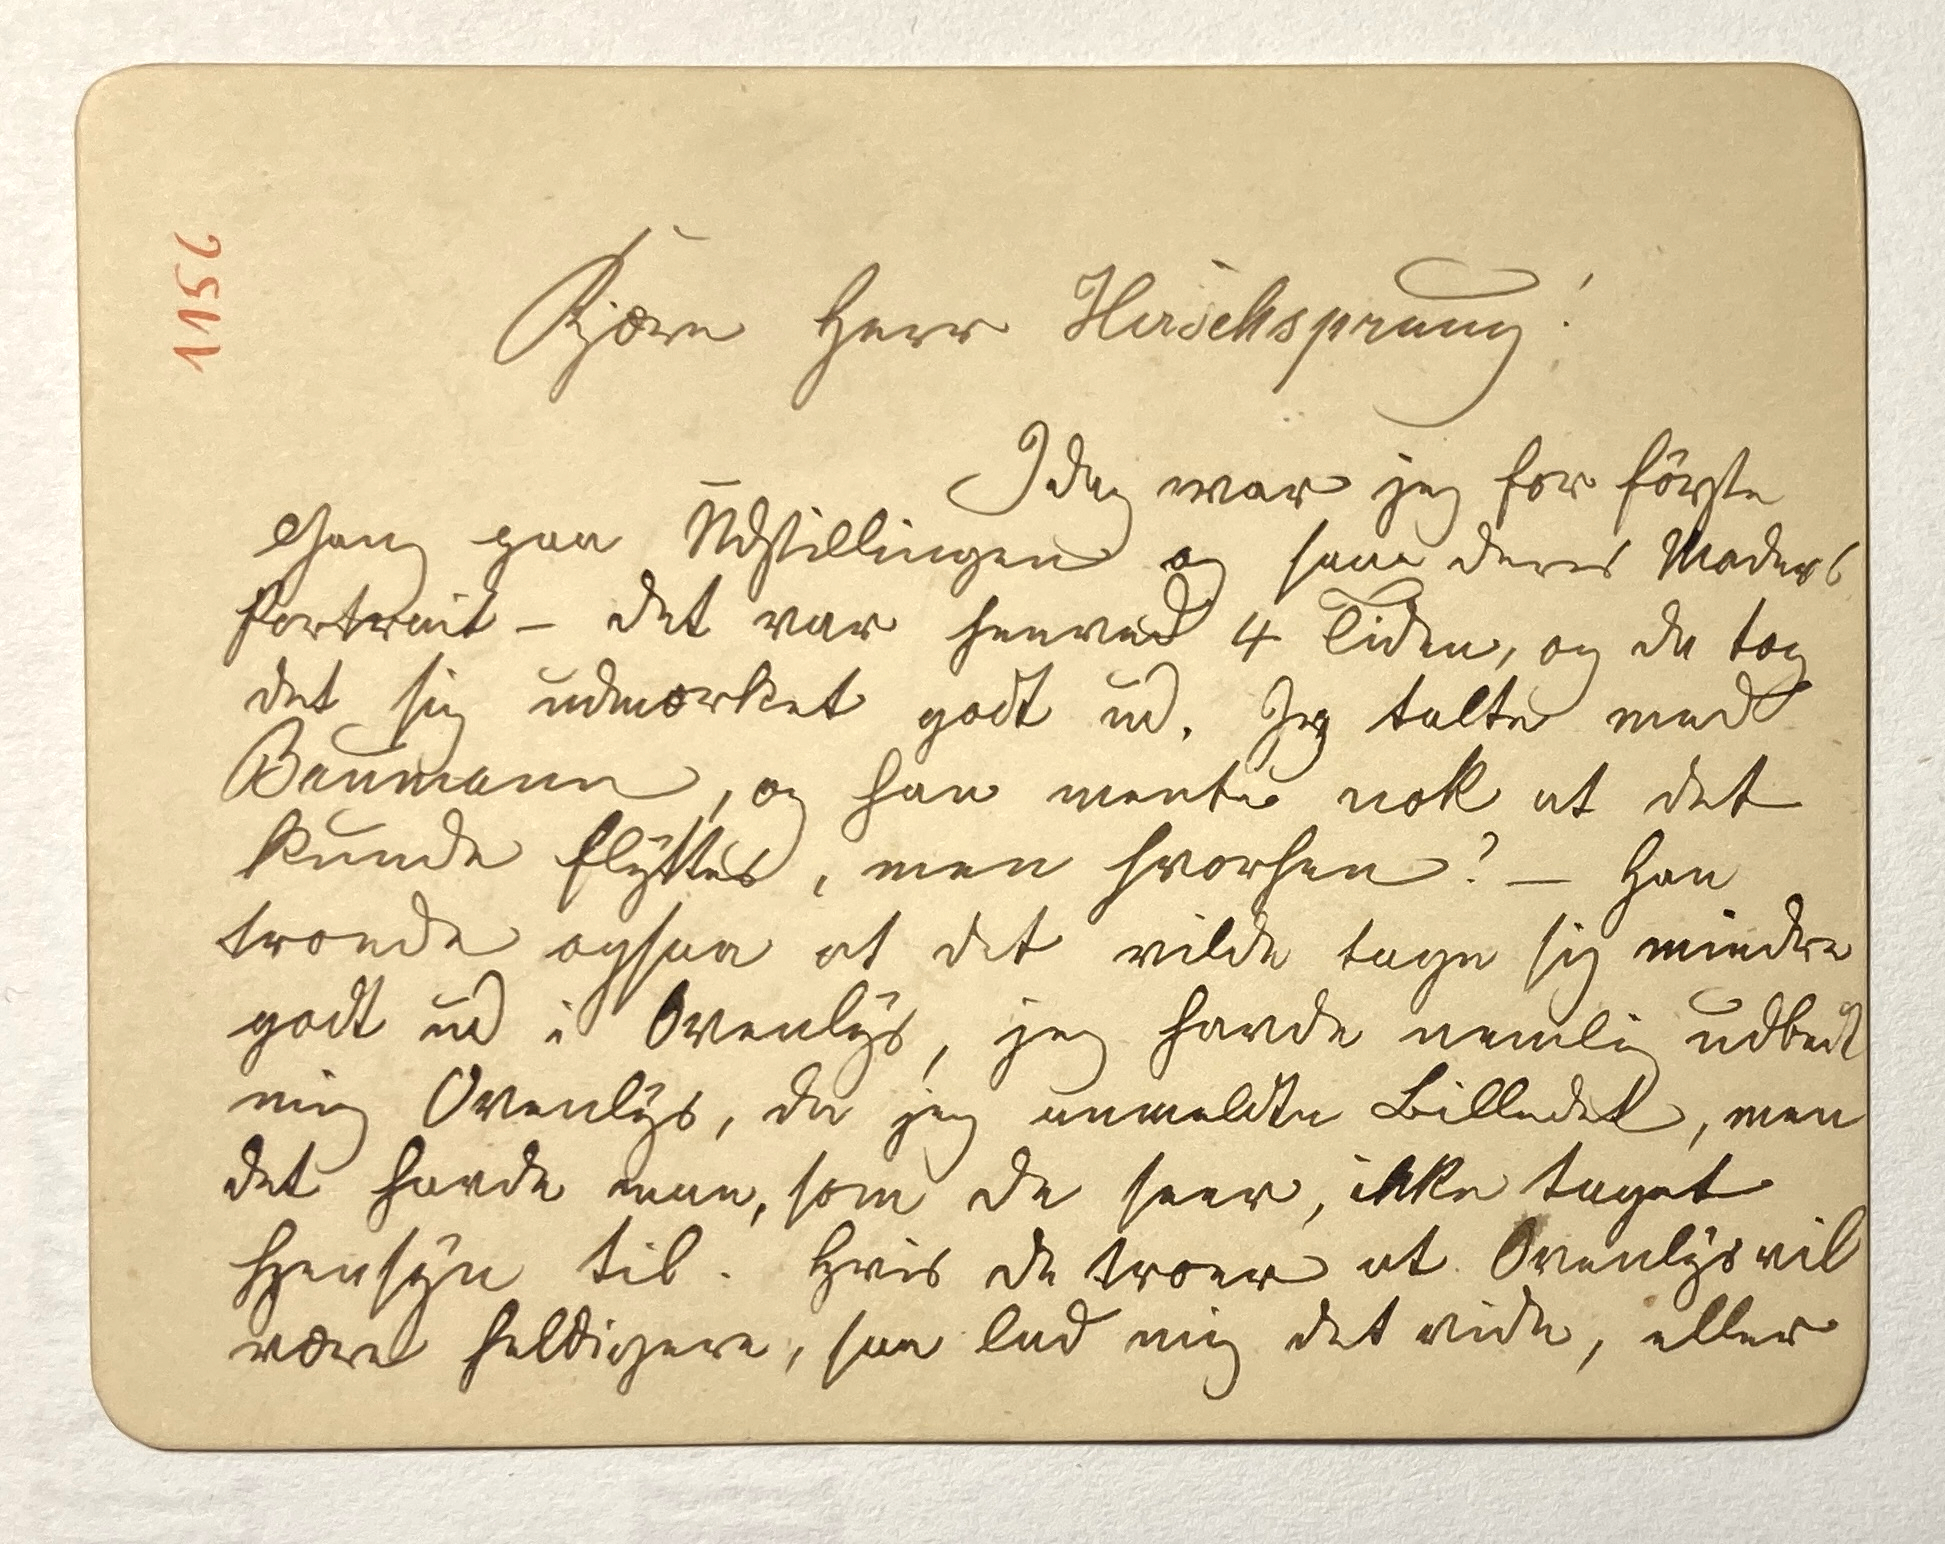 1156
Kjære Herr Hirschsprung!
Idag var jeg for förste
Gang paa Udstillingen og saae deres Moders
Portrait – det var henved 4 Tiden, og da tog
det sig udmærket godt ud. Jeg talte med
Baumann, og han mente nok at det
kunde flyttes, men hvorhen? – Han
troede ogsaa at det vilde tage sig mindre
godt ud i Ovenlys, jeg havde nemlig udbedt
mig Ovenlys, da jeg anmeldte Billedet, men
det havde man, som De seer, ikke taget
Hensyn til. Hvis De troer at Ovenlys vil
være heldigere, saa lad mig det vide, eller